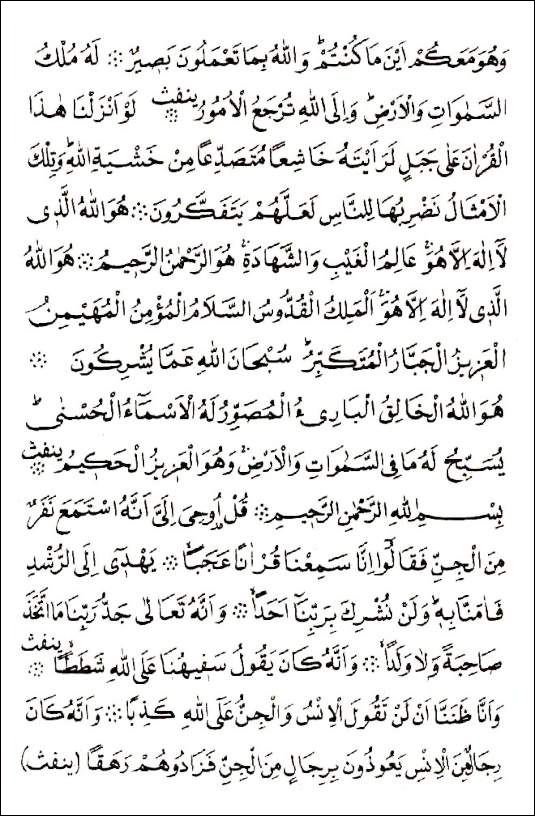 وَهُوَ مَعَكُمْ اَيْنَ مَا كُنْتُمْ ؕ وَاللّٰهُ بِمَا تَعْمَلُونَ بَصِيرٌ ۞ لَهُ مُلْكُ
السَّمٰوَاتِ وَالْاَرْضِ ؕ وَاِلَى اللّٰهِ تُرْجَعُ الْاُمُورُ ينفث ۞ لَوْ اَنْزَلْنَا هٰذَا
الْقُرْاٰنَ عَلٰى جَبَلٍ لَرَاَيْتَهُ خَاشِعًا مُتَصَدِّعًا مِنْ خَشْيَةِ اللّٰهِ ؕ وَتِلْكَ
الْاَمْثَالُ نَضْرِبُهَا لِلنَّاسِ لَعَلَّهُمْ يَتَفَكَّرُونَ ۞ هُوَ اللّٰهُ الَّذِى
لَٓا اِلٰهَ اِلَّا هُوَ ۚ عَالِمُ الْغَيْبِ وَالشَّهَادَةِ ۚ هُوَ الرَّحْمٰنُ الرَّحِيمُ ۞ هُوَ اللّٰهُ
الَّذِى لَٓا اِلٰهَ اِلَّا هُوَ ۚ اَلْمَلِكُ الْقُدُّوسُ السَّلَامُ الْمُؤْمِنُ الْمُهَيْمِنُ
الْعَزِيزُ الْجَبَّارُ الْمُتَكَبِّرُ ؕ سُبْحَانَ اللّٰهِ عَمَّا يُشْرِكُونَ ۞
هُوَ اللّٰهُ الْخَالِقُ الْبَارِىءُ الْمُصَوِّرُ لَهُ الْاَسْمَٓاءُ الْحُسْنٰى ؕ
يُسَبِّحُ لَهُ مَا فِى السَّمٰوَاتِ وَالْاَرْضِ ۚ وَهُوَ الْعَزِيزُ الْحَكِيمُ ينفث ۞
بِسْمِ اللّٰهِ الرَّحْمٰنِ الرَّحِيمِ ۞ قُلْ اُوحِىَ اِلَىَّ اَنَّهُ اسْتَمَعَ نَفَرٌ
مِنَ الْجِنِّ فَقَالُٓوا اِنَّا سَمِعْنَا قُرْاٰنًا عَجَبًا ۞ يَهْدِٓى اِلَى الرُّشْدِ
فَاٰمَنَّا بِهِ ؕ وَلَنْ نُشْرِكَ بِرَبِّنَٓا اَحَدًا ۞ وَاَنَّهُ تَعَالٰى جَدُّ رَبِّنَا مَا اتَّخَذَ
صَاحِبَةً وَلَا وَلَدًا ۞ وَاَنَّهُ كَانَ يَقُولُ سَفِيهُنَا عَلَى اللّٰهِ شَطَطًا ينفث ۞
وَاَنَّا ظَنَنَّٓا اَنْ لَنْ تَقُولَ الْاِنْسُ وَالْجِنُّ عَلَى اللّٰهِ كَذِبًا ۞ وَاَنَّهُ كَانَ
رِجَالٌ مِنَ الْاِنْسِ يَعُوذُونَ بِرِجَالٍ مِنَ الْجِنِّ فَزَادُوهُمْ رَهَقًا (ينفث)